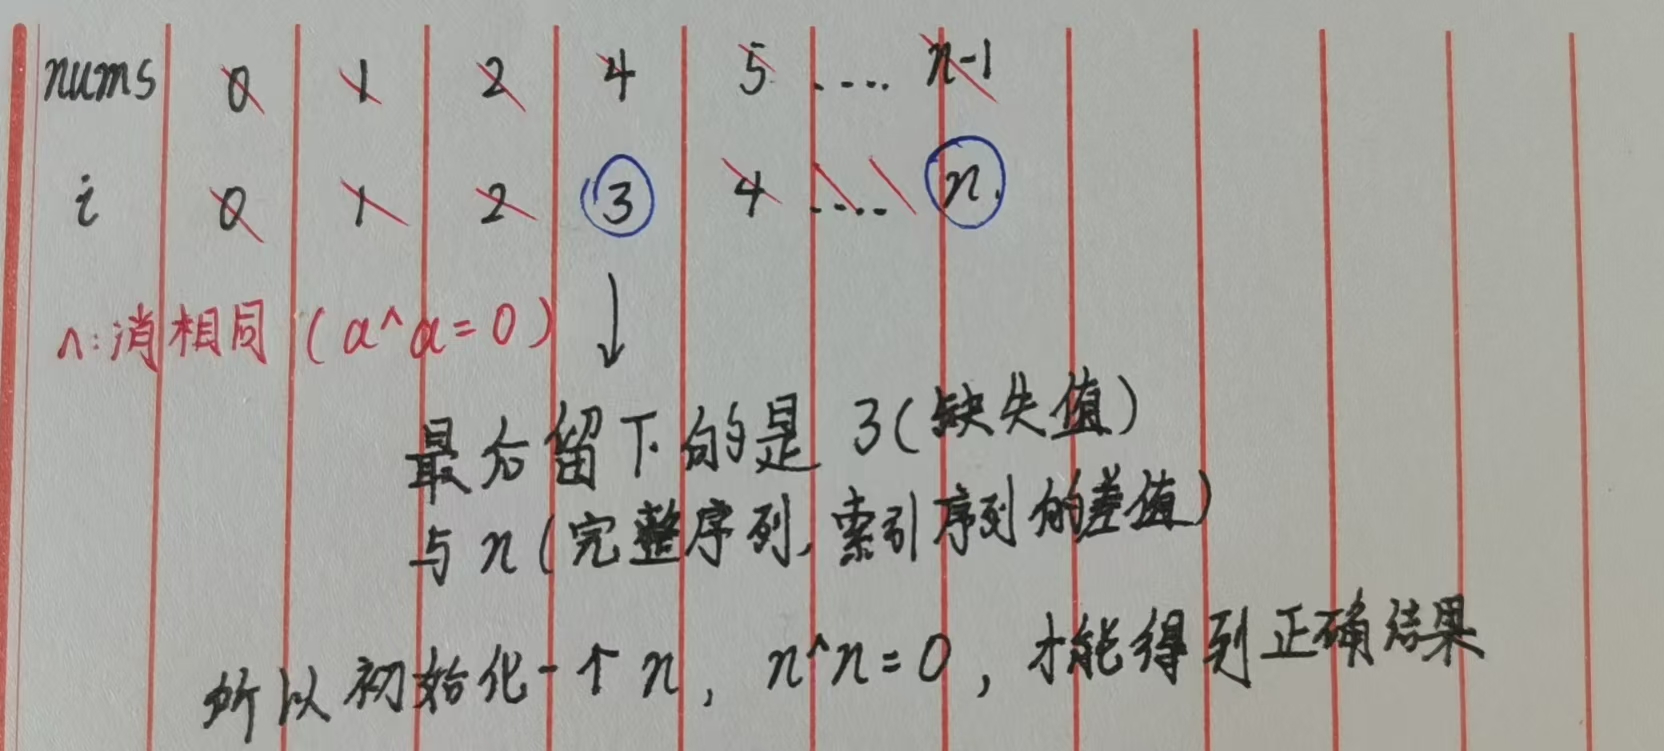 nums 0 1 2 4 5 .... n-1
i 0 1 2 3 4 .... n.
^:消相同 (a^a=0)
最后留下的是 3(缺失值)
与 n (完整序列, 索引序列的差值)
所以初始化一个 n, n^n=0, 才能得到正确结果